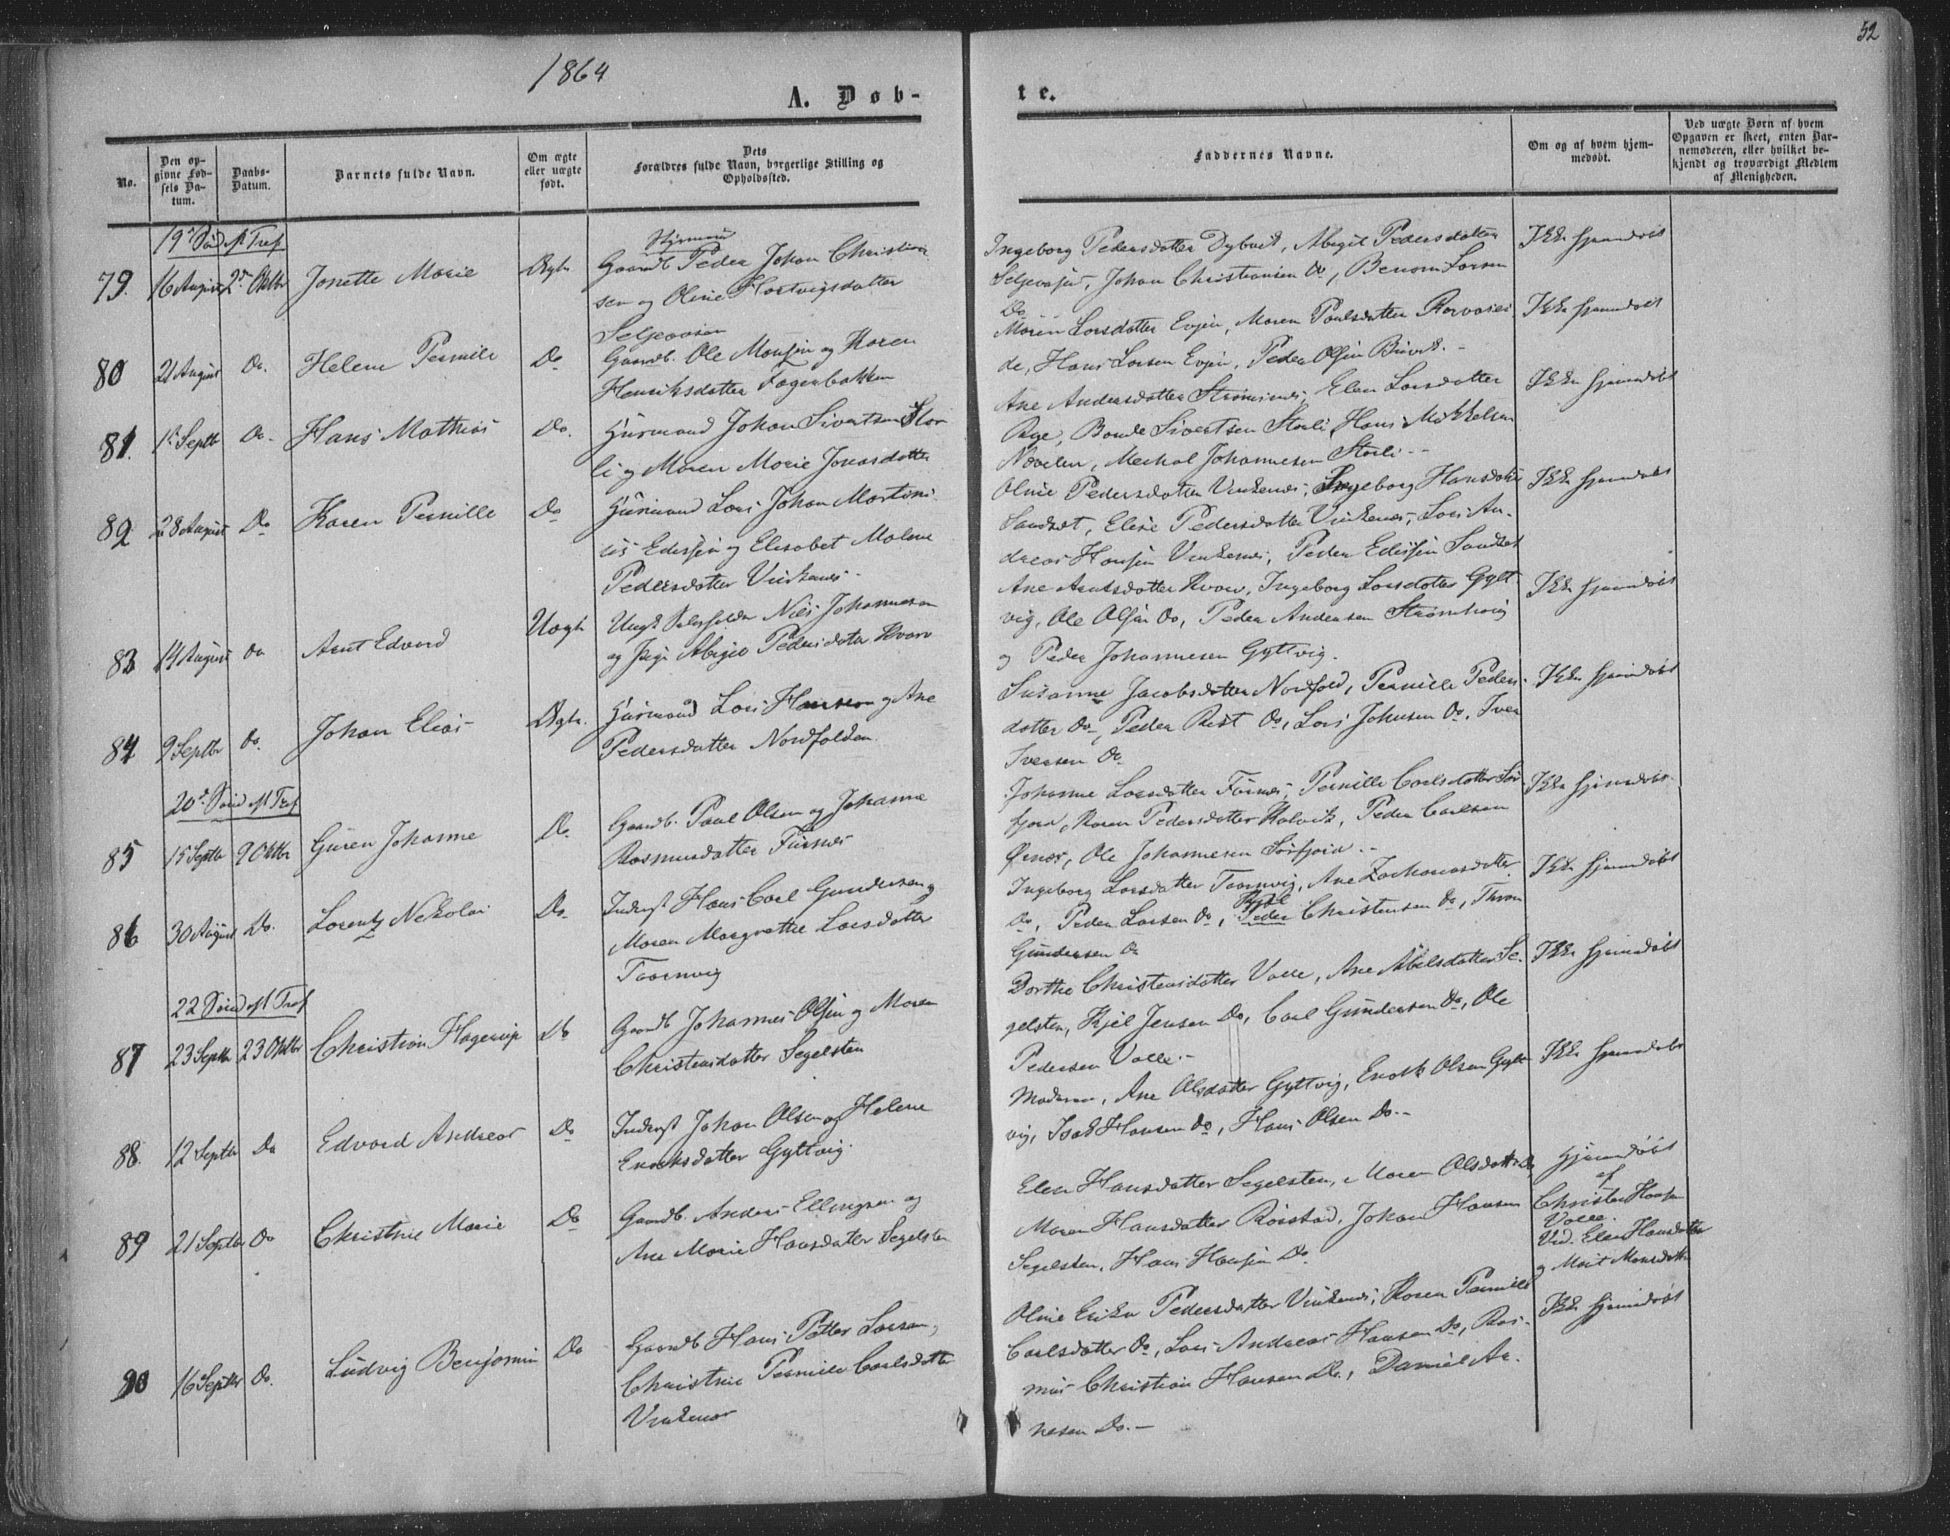 52
1864
A. Døb-
te.
No.
Den op-
givne Fød-
sels Da-
tum.
Daabs-
Datum.
Barnets fulde Navn.
Om ægte
eller uægte
født.
Dets
Forældres fulde Navn, borgerlige Stilling og
Opholdssted.
Faddernes Navne.
Om og af hvem hjem-
medøbt.
Ved uægte Børn af hvem
Opgaven er skeet, enten Bar-
nemoderen, eller hvilket be-
kjendt og troværdigt Medlem
af Menigheden.
19de Sønd eft Tref
79. 16 August 2den Oktbr Jonette Marie Ægte
Styrmand
Gaardb. Peder Johan Christian-
sen og Oline Hartvigsdatter
Seljevasøen
Ingeborg Pedersdatter Dybvik, Abigel Pedersdatter
Seljevasø, Johan Christiansen Do, Benoni Larsen
Do
Ikke hjemdøbt
80 21 August Do. Helene Pernille Do
Gaardb. Ole Monsen og Karen
Henriksdatter Fagerbakken
Maren Larsdatter Evjen, Maren Paulsdatter
de, Hans Larsen Evjen, Peder Olsen
Ikke hjemdøbt
81. 1ste Septbr Do. Hans Mathias Do.
Huusmand Johan Sivertsen Stor
li og Maren Marie Jonasdatter
Ane Andersdatter Strømsnes, Elen Larsdatter
Bonde Sivertsen Storli, Hans Mikkelsen
Johannesen Storli
Ikke hjemdøbt
82. 28 August Do Karen Pernille Do
Huusmand Lars Johan Martini-
us Edissen og Elisabet Malene
Pedersdatter Vinkenes
Oline Pedersdatter Vinkenes, Ingeborg Hansdatter
Sandset, Elise Pedersdatter Vinkenes, Lars An-
dreas Hansen Vinkenes, Peder Edissen Sandset
Ikke hjemdøbt
83 14 August Do Arnt Edvard Uægte
Ungk. Nils Johannesen
og Pige Abigel Pedersdatter Kvarv
Ane Arntsdatter Kvarv, Ingeborg Larsdatter Gylt
vig, Ole Olsen Do, Peder Andersen Strømhvig
og Peder Johannesen Gyltvig.
Ikke hjemdøbt
84 9 Septbr Do. Johan Elias Ægte.
Huusmand Lars Hansen og Ane
Pedersdatter Nordfolden.
Susanne Jacobsdatter Nordfold, Pernille Peders-
datter Do, Peder Rist Do, Lars Johnsen Do, Iver
Iversen Do
Ikke hjemdøbt
20de Sønd eft Tref
85 15 Septbr 9 Oktbr Guren Johanne Do
Gaardb. Paul Olsen og Johanne
Rasmusdatter Furnes
Johanne Larsdatter Furnes, Pernille Carlsdatter Sør
fjord, Karen Pedersdatter Kalvik, Peder Carlsen
Ørnes, Ole Johannesen Sørfjord
Ikke hjemdøbt.
86 30 August Do. Lorentz Nikolai Do.
Inderst Hans Carl Gundersen og
Maren Margrethe Larsdatter
Taarnvig
Ingeborg Larsdatter Taarnvig, Ane Zachariasdatter
Kjel
Do, Peder Larsen Do, Peder Christensen Do, Thron
Gundersen Do
Ikke hjemdøbt
22 Sønd eft Tref
87 23 Septbr 23 Oktbr Christian Hagerup Do
Gaardb Johannes Olsen og Maren
Christensdatter Segelsten
Dorthe Christensdatter Valle, Ane Abelsdatter Se-
gelsten, Kjel Jensen Do, Carl Gundersen Do, Ole
Pedersen Valle.-
Ikke hjemdøbt
88. 12 Septbr Do Edvard Andreas Do
Inderst Johan Olsen og Helene
Enoksdatter Gyltvig
Moderen, Ane Olsdatter Gyltvig, Enok Olsen Gylt
vig, Isak Hansen Do, Hans Olsen Do.-
Ikke hjemdøbt
89 21 Septbr Do Christine Marie Do
Gaardb. Anders Ellingsen og
Ane Marie Hansdatter Segelsten
Elen Hansdatter Segelsten, Maren Olsdatter Do
Maren Hansdatter Røsstad, Johan Hansen
Segelsten, Hans Hansen Do
Hjemdøbt
af
Christen Hansen
Valle.
Vid. Elen Hansdatter
og Marit Monsdatter
90 16 Septbr Do. Ludvig Benjamin Do
Gaardb Hans Petter Larsen,
Christine Pernille Carlsdatter
Vinkenes
Oline Erika Pedersdatter Vinkenes, Karen Pernille
Carlsdatter Do, Lars Andreas Hansen Do, Ras-
mus Christian Hansen Do., Daniel Ar-
nesen Do.-
Ikke hjemdøbt